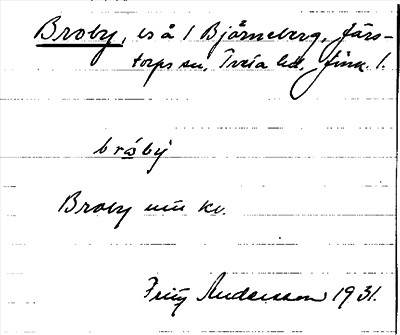 Broby, es å 1 Björneberg, Järs-
torps sn, Tveta hd, Jönk. l.
bròby
Broby uu kv.
Fritz Andersson 1931.